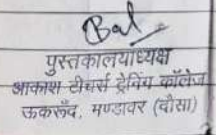 Bal
पुस्तकालयाध्यक्ष
आकाश टीचर्स ट्रेनिंग कॉलेज
ऊकरूँद, मण्डावर (दौसा)